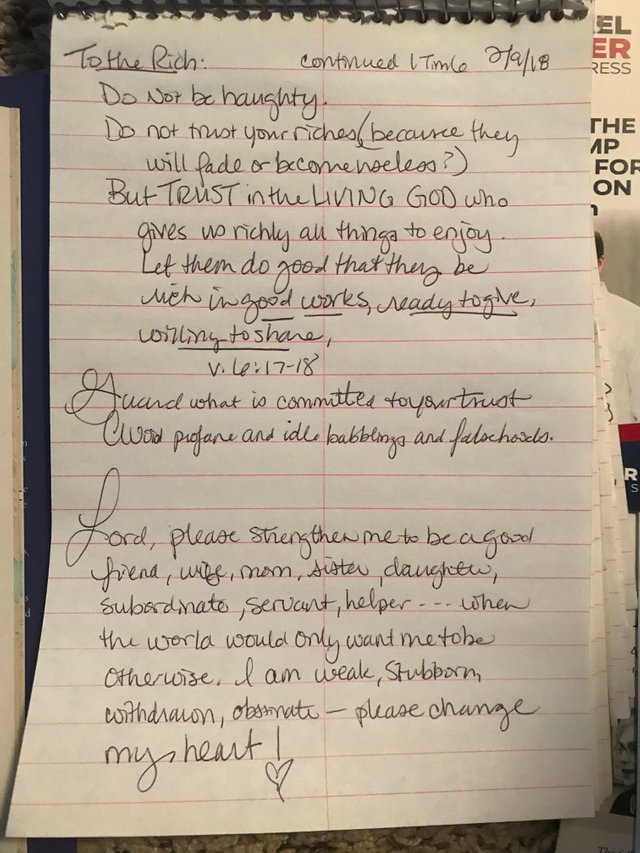 To the Rich: continued 1 Tim 6 2/9/18
Do Not be haughty.
Do not trust your riches (because they
will fade or become useless?)
But TRUST in the LIVING GOD who
gives us richly all things to enjoy.
Let them do good that they be
rich in good works, ready to give,
willing to share,
v. 6:17-18
Guard what is committed to your trust
Avoid profane and idle babblings and falsehoods.
Lord, please strengthen me to be a good
friend, wife, mom, sister, daughter,
subordinate, servant, helper ---- when
the world would only want me to be
otherwise. I am weak, stubborn,
withdrawn, obstinate — please change
my heart!
EL
ER
RESS
THE
MP
FOR
ON